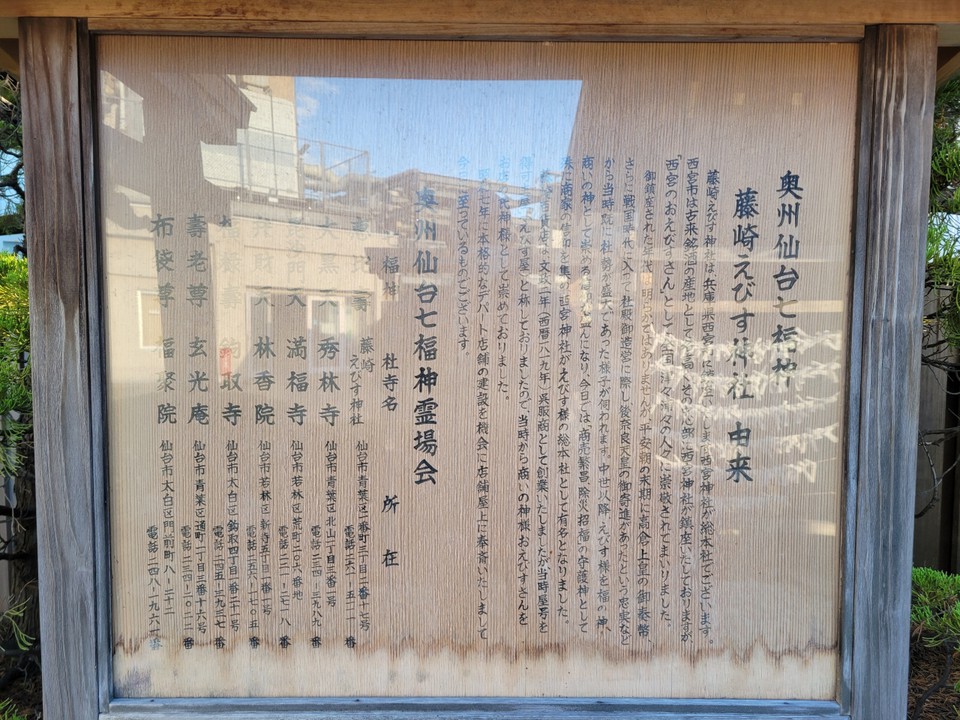 奥州仙台七福神
藤崎えびす神社由来
藤崎えびす神社は、兵庫県西宮市に しま 西宮神社が総本社でございます。
西宮市は古来銘酒の産地として 西宮神社が鎮座いたしておりますが、
「西宮のおえびすさん」として 人々に崇敬されてまいりました。
御鎮座された年代は明らかではありませんが、平安朝の末期に高倉上皇の御奉幣、
さらに戦国時代に入って社殿御造営に際し、後奈良天皇の御寄進があったという史実など
から当時既に社勢が盛大であった様子が伺われます。中世以降、えびす様を福の神、
商いの神として崇める になり、今日では、商売繁昌、除災招福の守護神として
商家の信仰を集め 西宮神社がえびす様の総本社として有名となりました。
文政二年(西暦一八一九年)呉服商として創業いたしましたが、当時屋号を
えびす屋」と称しておりましたので、当時から商いの神様おえびすさんを
お店 神様として崇めておりました。
七年に本格的なデパート店舗の建設を機会に店舗屋上に奉斎いたしまして
今日 至っているものでございます。
奥州仙台七福神霊場会
福神 社寺名 所在
藤崎えびす神社 仙台市青葉区一番町三丁目二番十七号 電話二六一-五一一一番
大黒天 秀林寺 仙台市青葉区北山一丁目三番一号 電話二三四-三九八九番
天 満福寺 仙台市若林区荒町二〇六番地 電話二二 -二七一八番
天 林香院 仙台市若林区新寺五丁目 番一号 電話二五六-一七〇五番
鉤取寺 仙台市太白区鈎取四丁目 番二十一号 電話二四五-三九三七番
壽老尊 玄光庵 仙台市青葉区通町一丁目三番十六号 電話二三四-二〇二一番
布袋尊 福聚院 仙台市太白区門前町八-二十一 電話二四八-一九六一番